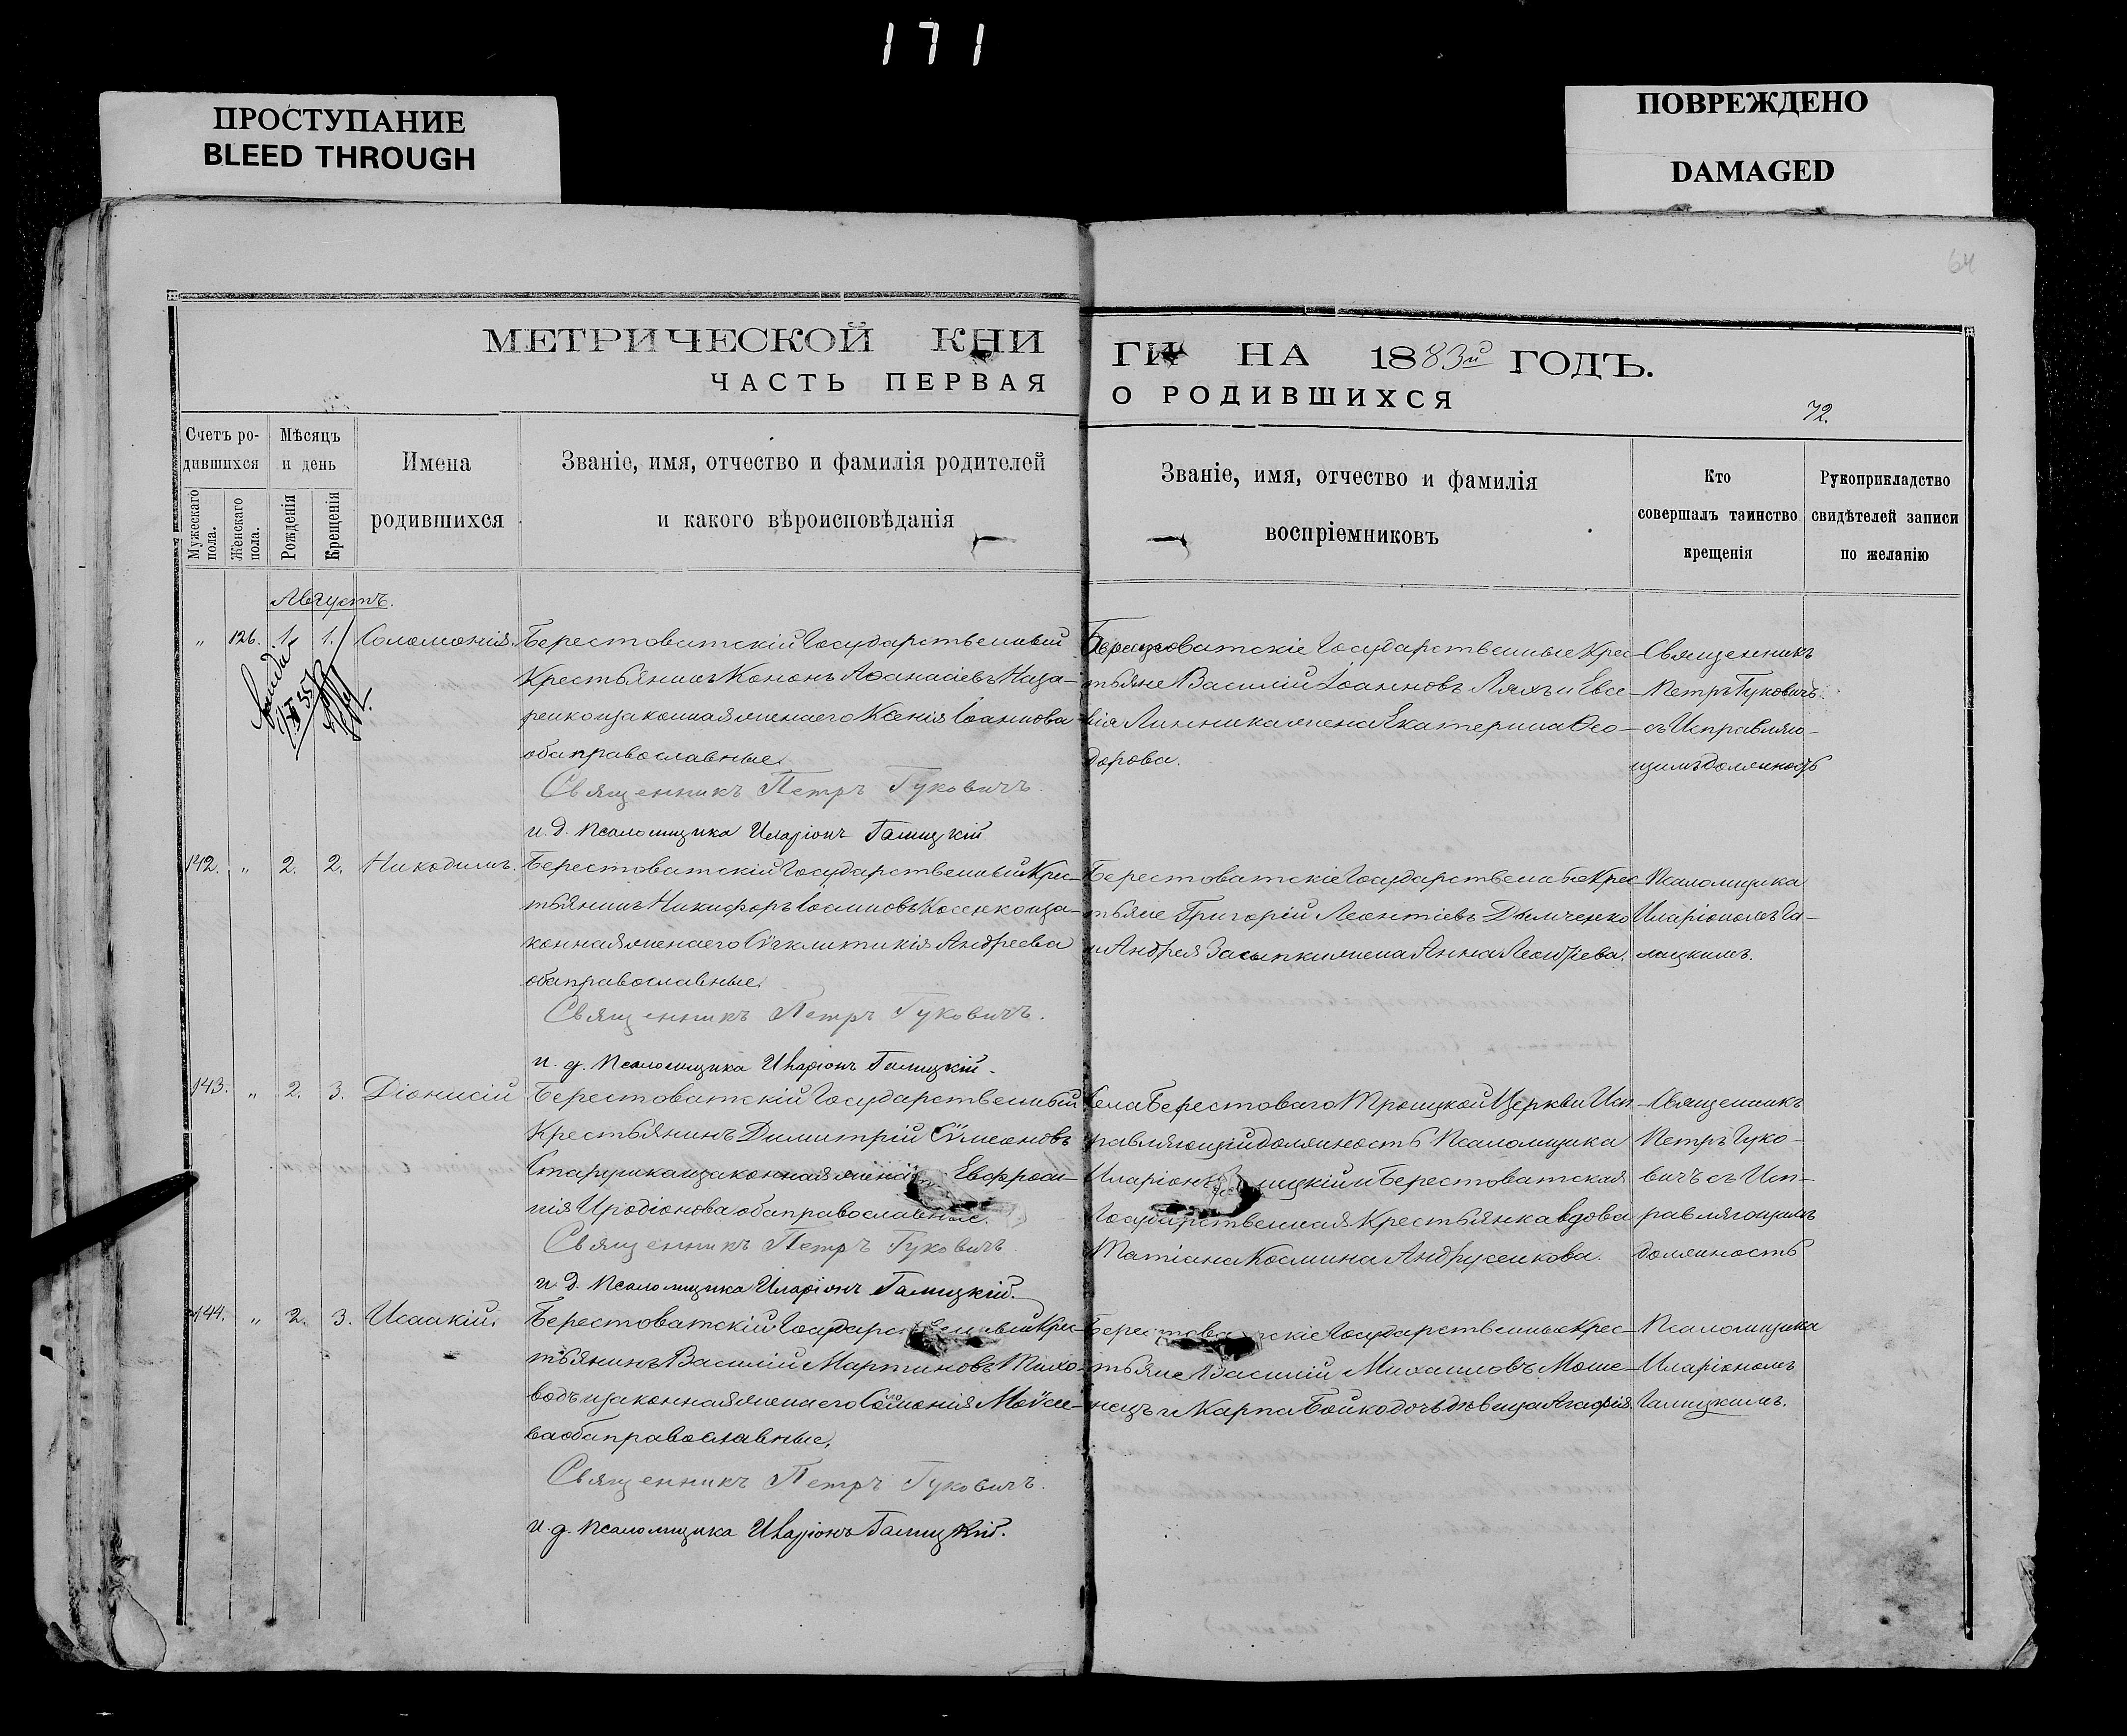 171
ПРОСТУПАНИЕ
BLEED THROUGH
ПОВРЕЖДЕНО
DAMAGED
64
МЕТРИЧЕСКОЙ КНИ
ГИ НА 1883й ГОДЪ.
ЧАСТЬ ПЕРВАЯ
О РОДИВШИХСЯ
72.
Счетъ ро-
дившихся
Мужескаго пола.
Женскаго пола.
Мѣсяцъ
и день
Рожденія
Крещенія
Имена
родившихся
Званіе, имя, отчество и фамилія родителей
и какого вѣроисповѣданія
Званіе, имя, отчество и фамилія
воспріемниковъ
Кто
совершалъ таинство
крещенія
Рукоприкладство
свидѣтелей записи
по желанію
Августъ.
„ 126. 1. 1. Соломонія.
Берестоватскій Государственный
Крестьянинъ Кононъ Аѳанасіевъ Наза-
ренко и законная жена его Ксенія Іоаннова
оба православные.
Священникъ Петръ Гуковичъ.
и. д. Псаломщика Иларіонъ Галицкій
Берестоватскіе Государственные Крес-
тьяне Василій Іоанновъ Ляхъ и Евсе-
вія Линника жена Екатерина Ѳео-
дорова.
Священникъ
Петръ Гуковичъ
съ Исправляю-
щимъ должность
142. „ 2. 2. Никодимъ.
Берестоватскій Государственный Крес-
тьянинъ Никифоръ Іоанновъ Косенко и за-
конная жена его Сѵгклитикія Андреева
оба православные.
Священникъ Петръ Гуковичъ.
и. д. Псаломщика Иларіонъ Галицкій.
Берестоватскіе Государственные Крес-
тьяне Григорій Леонтіевъ Дымченко
и Андрея Засыпки жена Анна Леонтіева.
Псаломщика
Иларіономъ Га-
лицкимъ.
143. „ 2. 3. Діонисій
Берестоватскій Государственный
Крестьянинъ Димитрій Сѵмеоновъ
Старушка и законная жена Евфроси-
нія Иродіонова оба православные.
Священникъ Петръ Гуковичъ
и. д. Псаломщика Иларіонъ Галицкій.
Села Берестоваго Троицкой Церкви Исп-
равляющій должность Псаломщика
Иларіонъ Галицкій и Берестоватская
Государственная Крестьянка вдова
Татіана Космина Андрусенкова.
Священникъ
Петръ Гуко-
вичъ съ Исп-
равляющимъ
должность
144. „ 2. 3. Исаакій.
Берестоватскій Государственный Крес-
тьянинъ Василій Мартиновъ Тихо-
водъ и законная жена его Соломонія Моѵсее-
ва оба православные.
Священникъ Петръ Гуковичъ.
и. д. Псаломщика Иларіонъ Галицкій.
Берестоватскіе Государственные Крес-
тьяне Василій Михаиловъ Моше-
нецъ и Карпа Бойко дочь дѣвица Агафія.
Псаломщика
Иларіономъ
Галицкимъ.